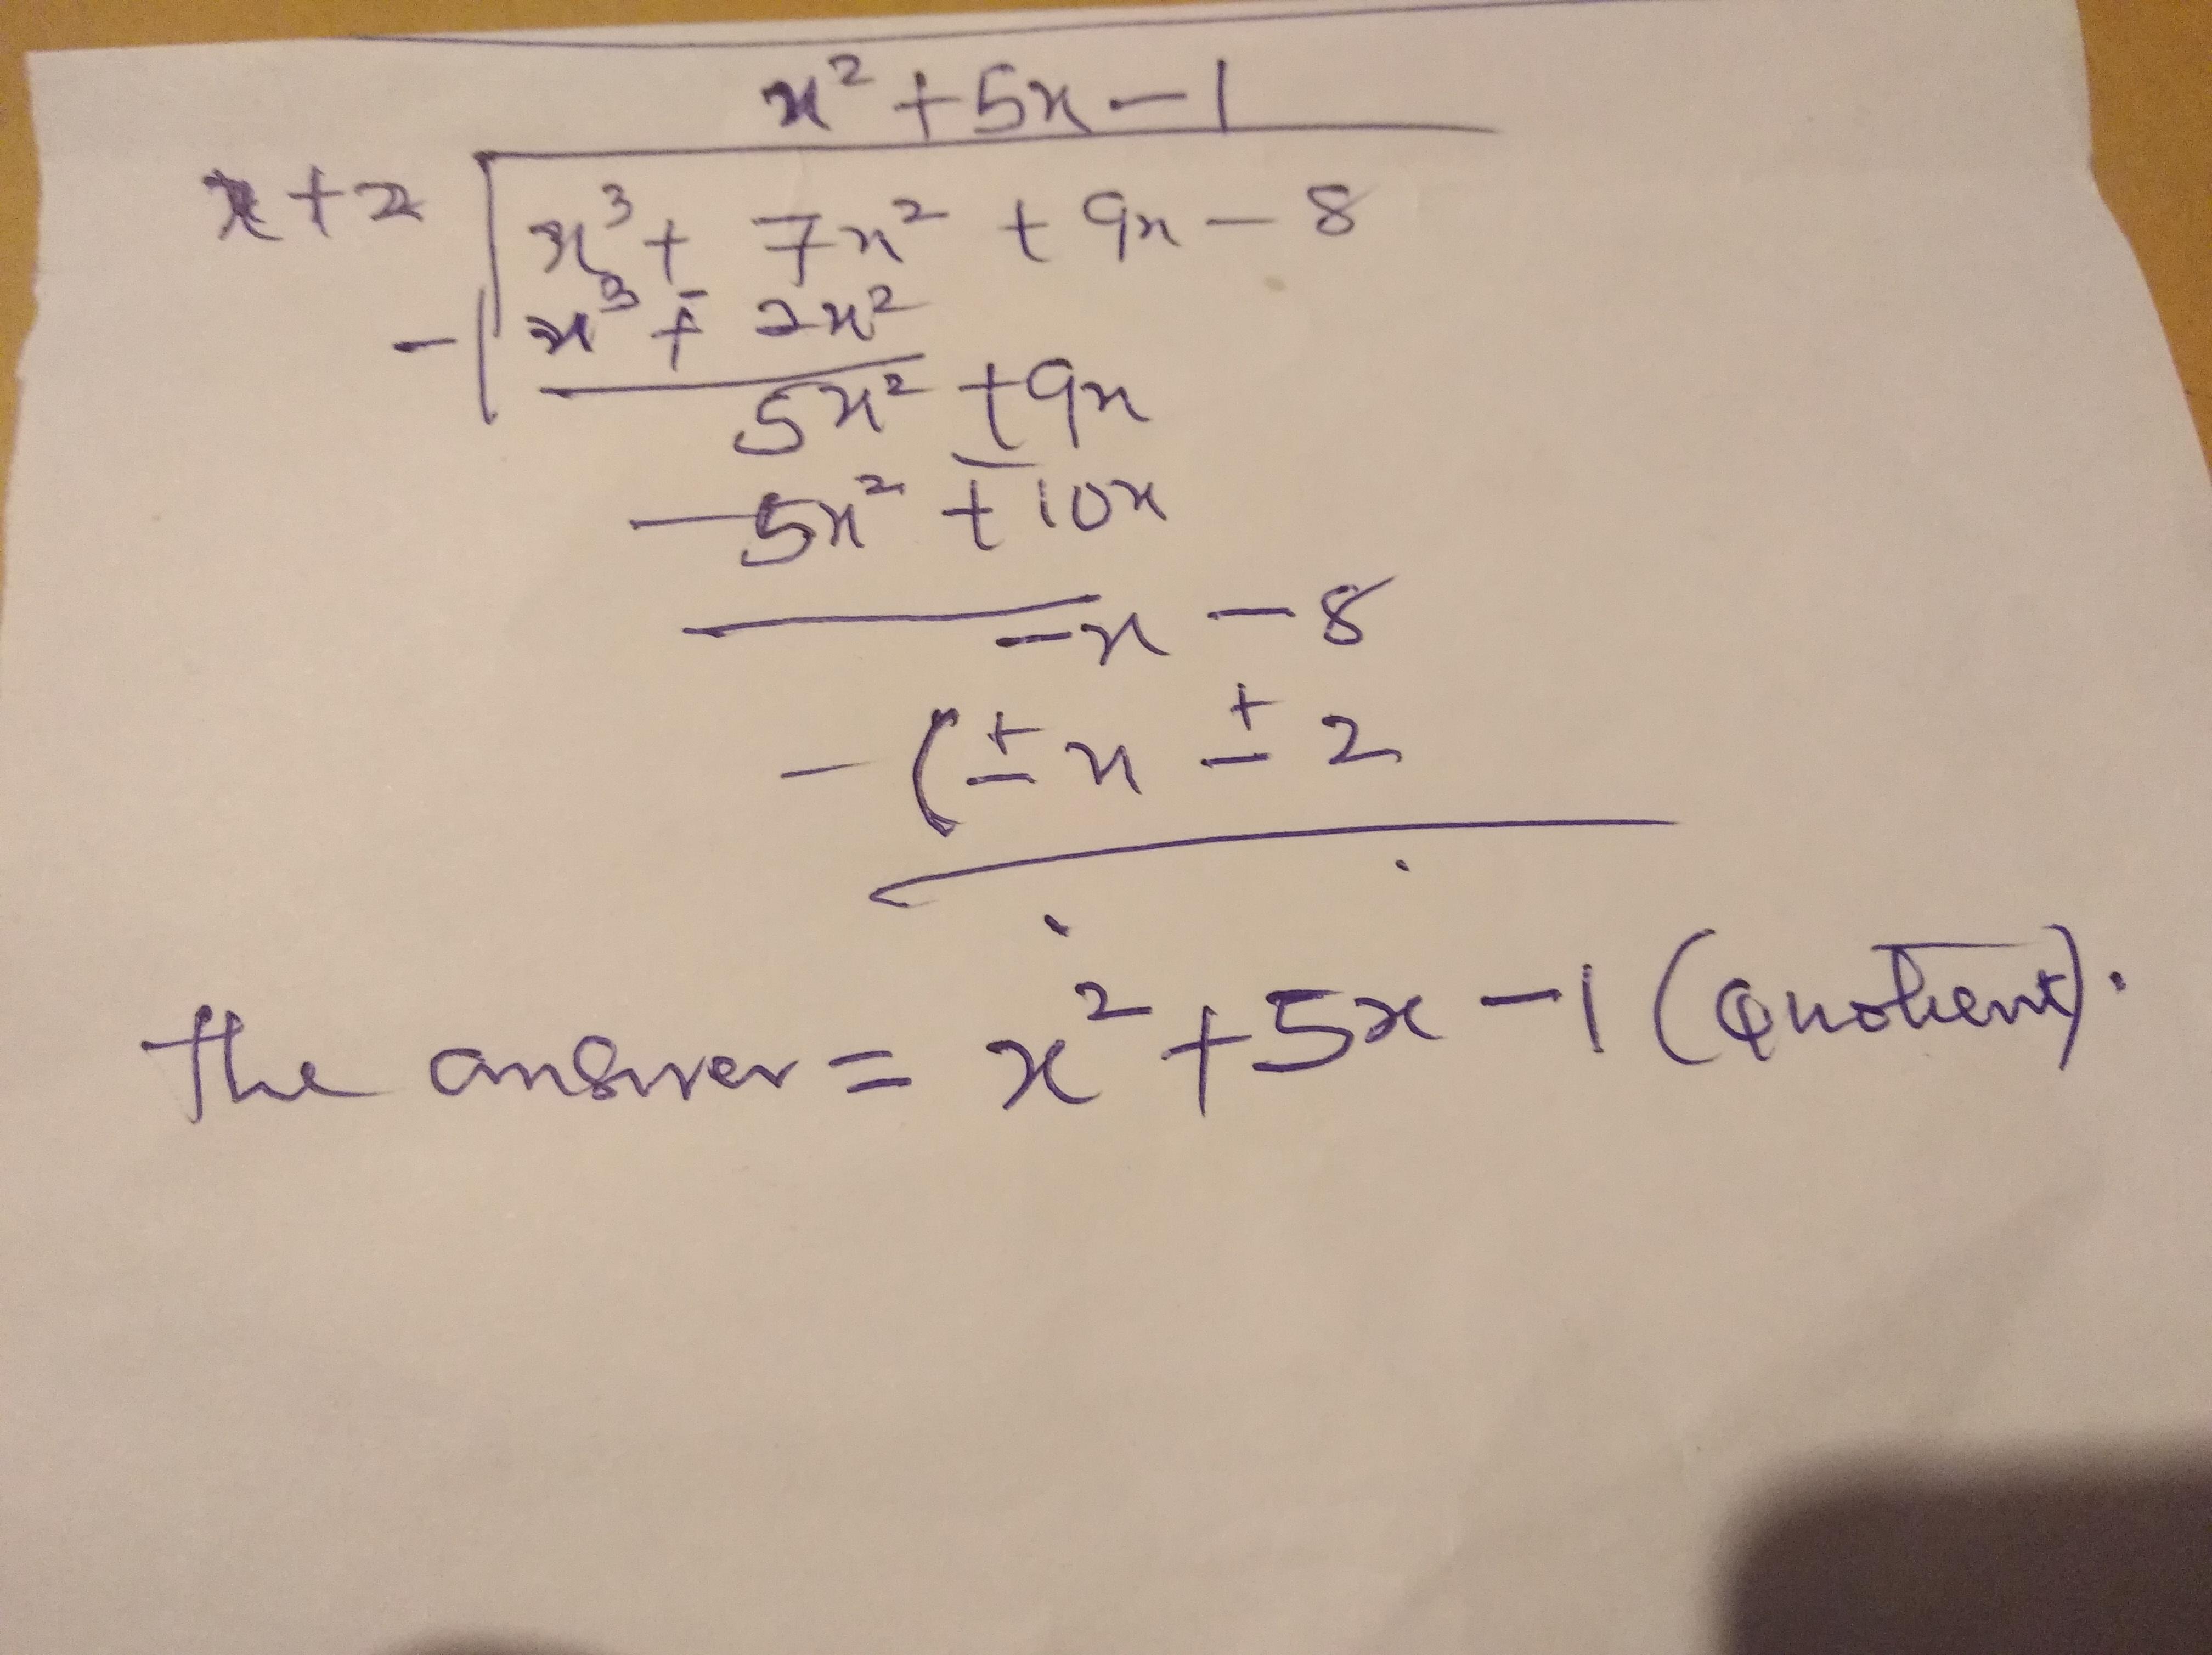 x² + 5x - 1
x + 2 x³ + 7x² + 9x - 8
- x³ ∓ 2x²
5x² + 9x
- 5x² ∓ 10x
-x - 8
- (± x ± 2
the answer = x² + 5x - 1 (Quotient).